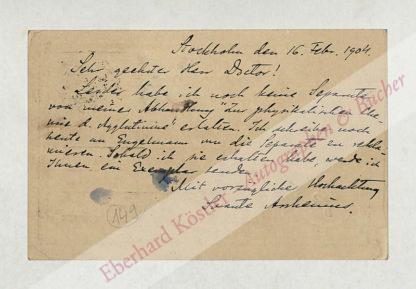 Stockholm den 16. Febr. 1904.
Sehr geehrter Herr Doctor!
Leider habe ich noch keine Separata
von meiner Abhandlung "Zur physikalischen Che-
mie d. Agglutinine" erhalten. Ich schreibe noch
heute an Engelmann um die Separate zu rekla-
mieren. Sobald ich sie erhalten habe, werde ich
Ihnen ein Exemplar senden.
Mit vorzüglicher Hochachtung
Svante Arrhenius.
149
Eberhard Köstler Autographen & Bücher